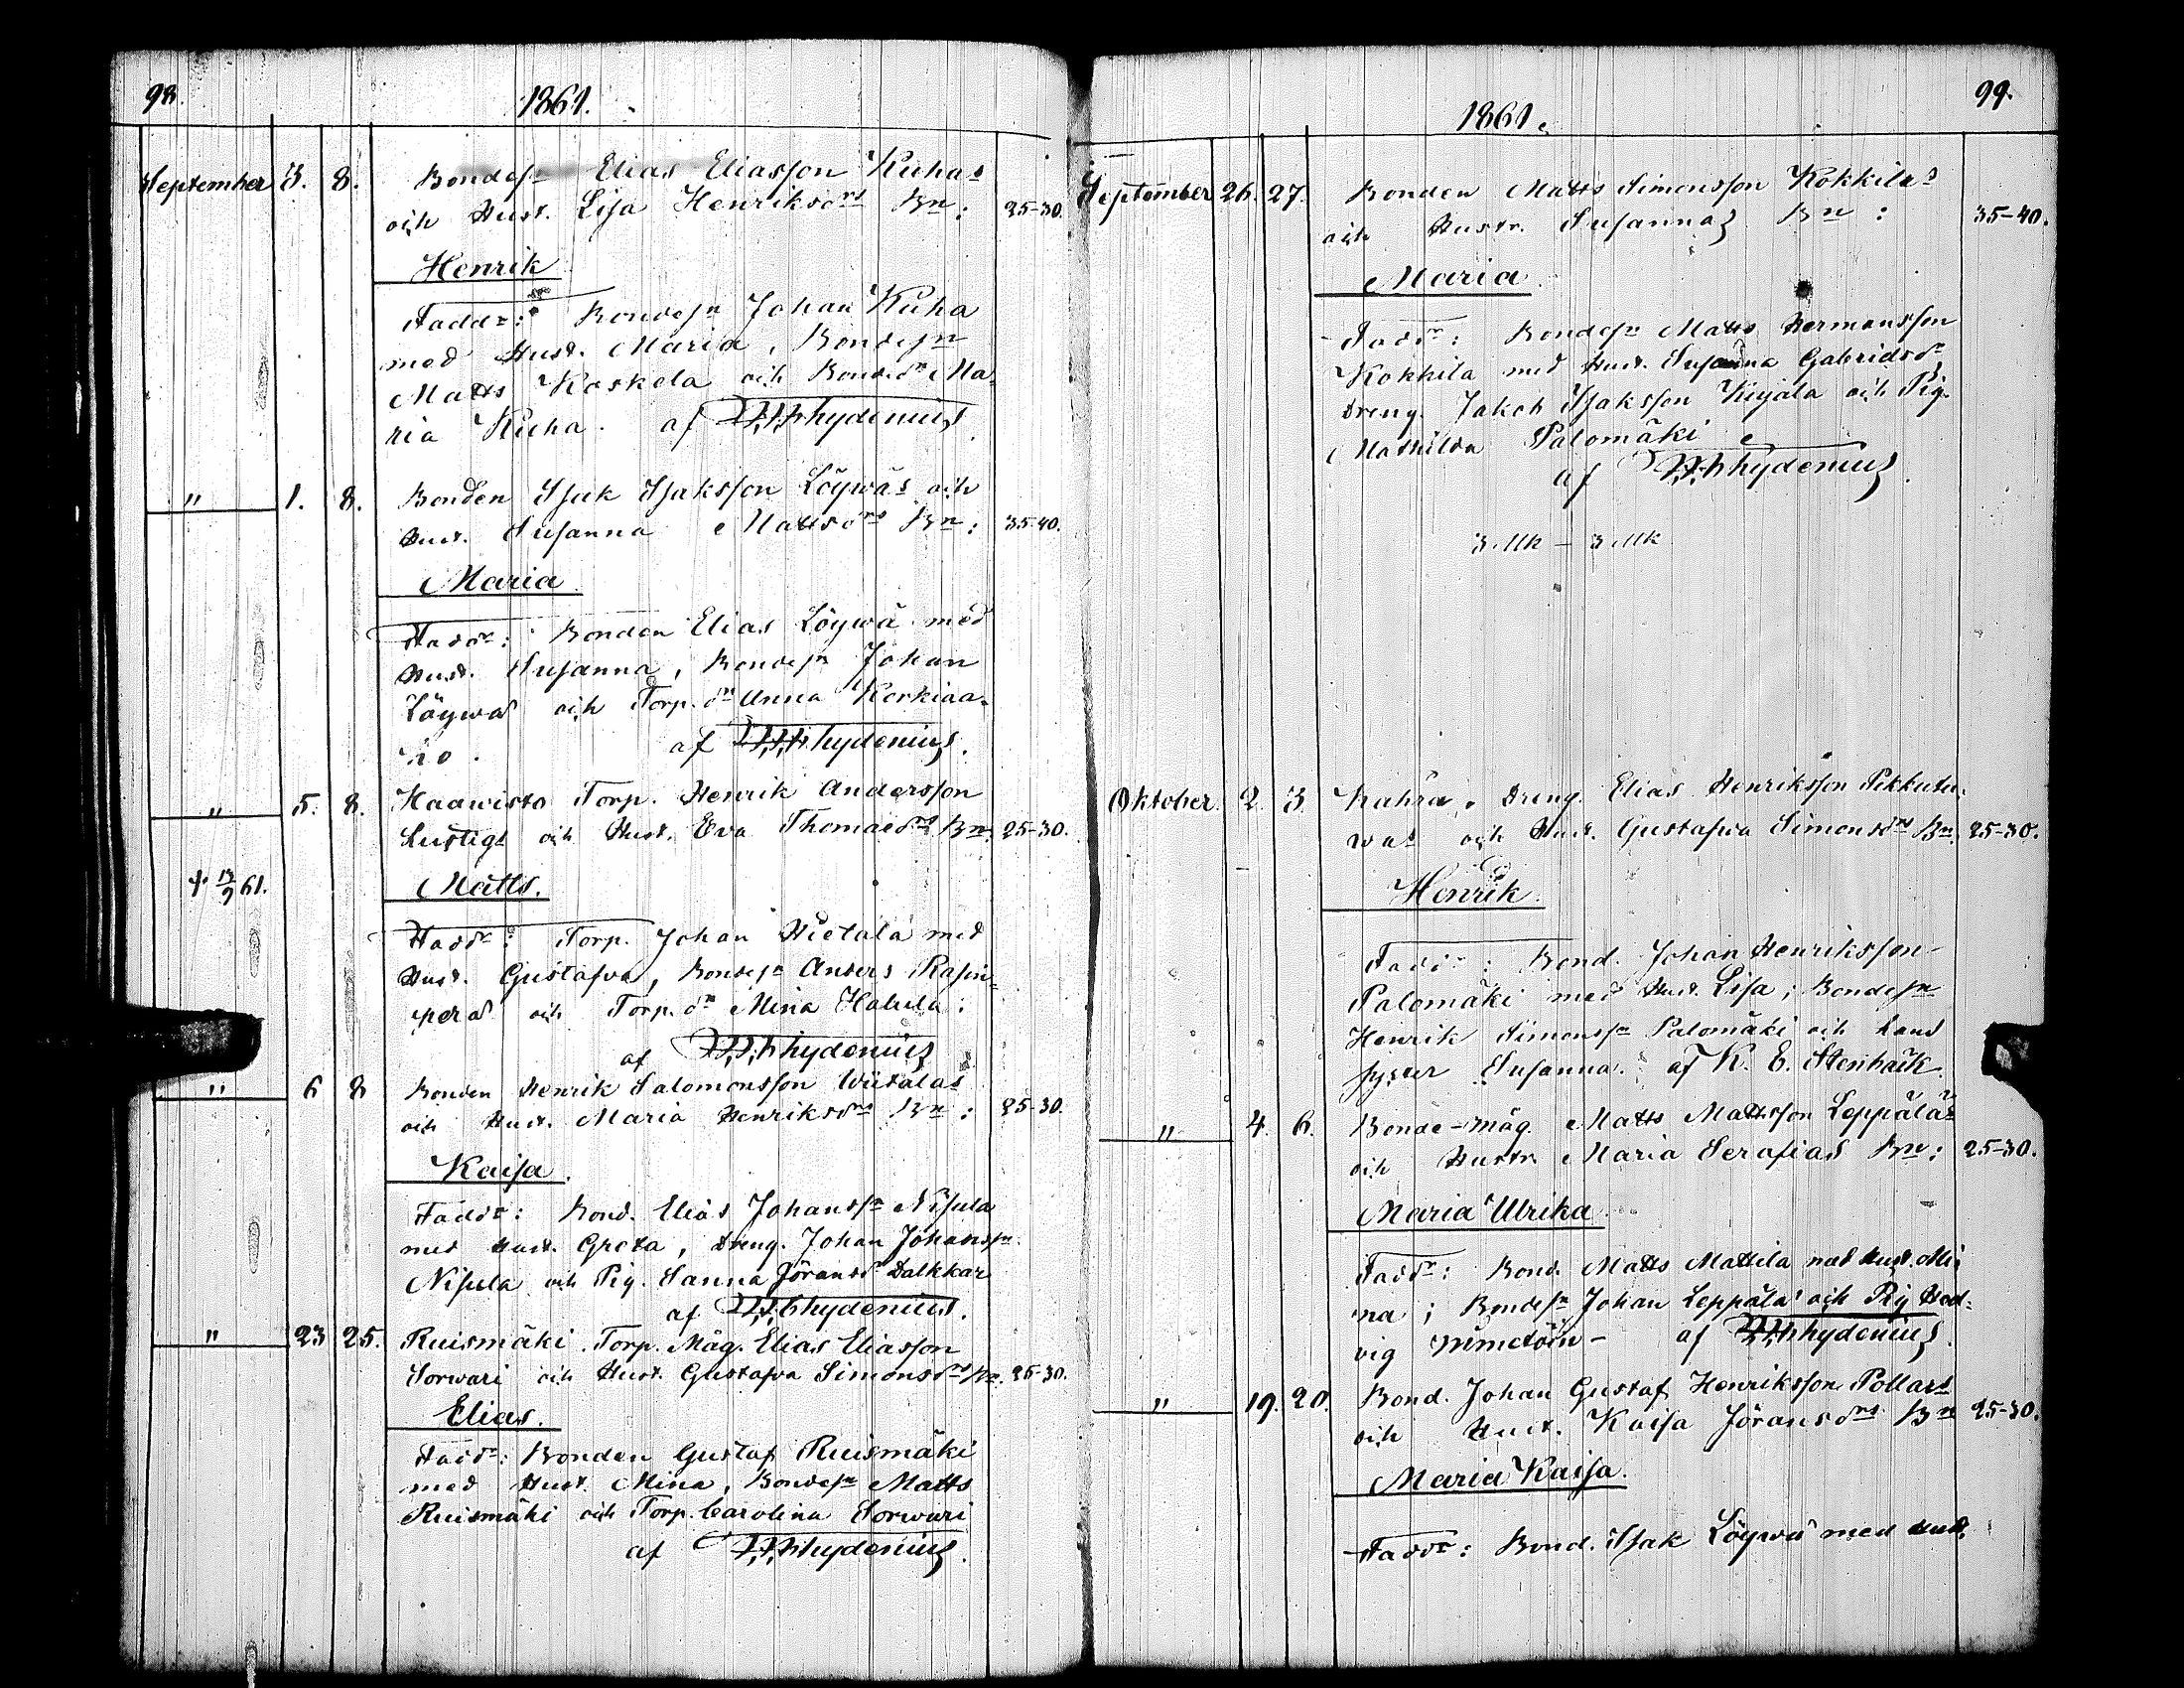 98.
1861.
September 3. 8. Bondesn Elias Eliasson Kuhas
och Hust. Lisa Henriksdrs Bn: 25-30.
Henrik
Faddr: Bondesn Johan Kuha
med Hust. Maria, Bondesn
Matts Koskela och Bonded. Ma-
ria Kuha. af Thydenius
" 1. 8. Bonden Isak Isaksson Löywäs och
Hust. Susanna Mattsdrs Bn: 35-40.
Maria
Faddr: Bonden Elias Löywä med
Hust. Susanna, Bondesn Johan
Löywä och Torp. dr Anna Korkiaa-
ho. af Thydenius.
" 5. 8. Haawisto Torp. Henrik Andersson
Lustigs och Hust. Eva Thomaedrs Bn. 25-30.
† 13/9 61.
Matts.
Faddr: Torp. Johan Hietala med
Hust. Gustafva, Bondesn Anders Rasin-
perä och Torp. dr Mina Hakula:
af Thydenius
" 6 8 Bonden Henrik Salomonsson Wiitalas
och Hust. Maria Henriksdrs Bn: 25-30.
Kaisa.
Faddr: Bond. Elias Johanssn Nisula
med Hust. Greta, Dreng. Johan Johanssn
Nisula och Pig. Sanna Jöransdr Dalkkar
af Thydenius.
" 23 25. Ruismäki Torp. Måg. Elias Eliasson
Sorwari och Hust. Gustafva Simonsdrs Bn. 25-30.
Elias.
Faddr: Bonden Gustaf Ruismäki
med Hust. Mina, Bondesn Matts
Ruismäki och Torp. Carolina Sorwari
af Thydenius.
99.
1861.
September 26. 27. Bonden Matts Simonsson Kokkilas
och Hustr. Susannas Bn: 35-40.
Maria
Faddr: Bondesn Matts Hermansson
Kokkila med Hust. Susanna Gabrielsdr
Dreng. Jakob Isaksson Kujala och Pig.
Mathilda Palomäki
af Thydenius.
3 Mk - 3 Mk
Oktober. 2. 3. Dreng. Elias Henriksson
och Hust. Gustafva Simonsdrs Bn. 25-30.
Henrik.
Faddr: Bond. Johan Henriksson
Palomäki med Hust. Lisa; Bondesn
Henrik Simonsn Palomäki och hans
syster Susanna. af K. E. Stenbäck.
" 4. 6. Bonde-måg. Matts Mattsson Leppäläs
och Hustr. Maria Serafias Bn: 25-30.
Maria Ulrika
Faddr: Bond. Matts Mattila med Hust. Mi
na; Bondesn Johan Leppälä och Pig Hed-
vig af Thydenius.
" 19. 20. Bond. Johan Gustaf Henriksson Pollars
och Hust. Kaisa Jöransdrs Bn 25-30.
Maria Kaisa.
Faddr: Bond. Isak Löywä med Hust.